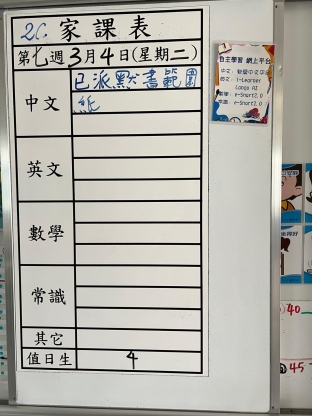 2C. 家課表
第七週3月4日(星期二)
中文
已派默書範圍
紙
英文
數學
常識
其它
值日生
4
自主學習 網上平台
i-Learner
Longo AI
e-Smart2.0
e-Smart2.0
40
45